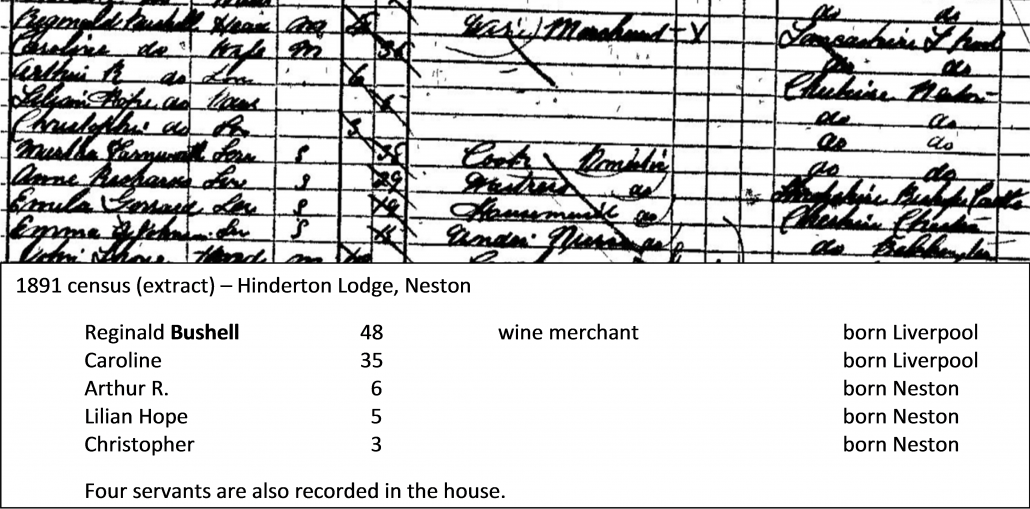 do do
Reginald Bushell Head M 48 Wine Merchant - X Lancashire L'pool
Caroline do Wife M 35 do do
Arthur R do Son 6 Cheshire Neston
Lilian Hope do 5 do do
Christopher do 3 do do
Martha Farnworth S 35 Cook Domestic do do
Anne Richards S 29 Waitress do Bishops Castle
S 19 Housemaid do Cheshire Chester
Emma S Under Nurse do do
John
1891 census (extract) – Hinderton Lodge, Neston
Reginald Bushell 48 wine merchant born Liverpool
Caroline 35 born Liverpool
Arthur R. 6 born Neston
Lilian Hope 5 born Neston
Christopher 3 born Neston
Four servants are also recorded in the house.